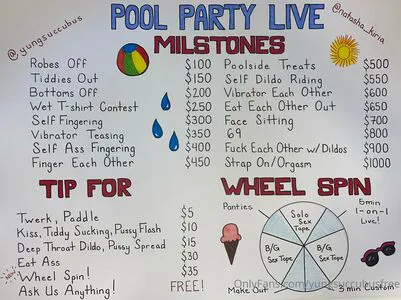 POOL PARTY LIVE
@yungsuccubus
@natasha_kiria
MILSTONES
Robes Off $100
Tiddies Out $150
Bottoms Off $200
Wet T-shirt Contest $250
Self Fingering $300
Vibrator Teasing $350
Self Ass Fingering $400
Finger Each Other $450
Poolside Treats $500
Self Dildo Riding $550
Vibrator Each Other $600
Eat Each Other Out $650
Face Sitting $700
69 $800
Fuck Each Other w/Dildos $900
Strap On/Orgasm $1000
TIP FOR
Twerk, Paddle $5
Kiss, Tiddy Sucking, Pussy Flash $10
Deep Throat Dildo, Pussy Spread $15
Eat Ass $30
Wheel Spin! $35
Ask Us Anything! FREE!
WHEEL SPIN
Panties
Solo
Sex
Tape
5min
1-on-1
Live!
B/G
Sex Tape
B/G
Sex Tape
Make Out
5min Custom
OnlyFans.com/yungsuccubusfree